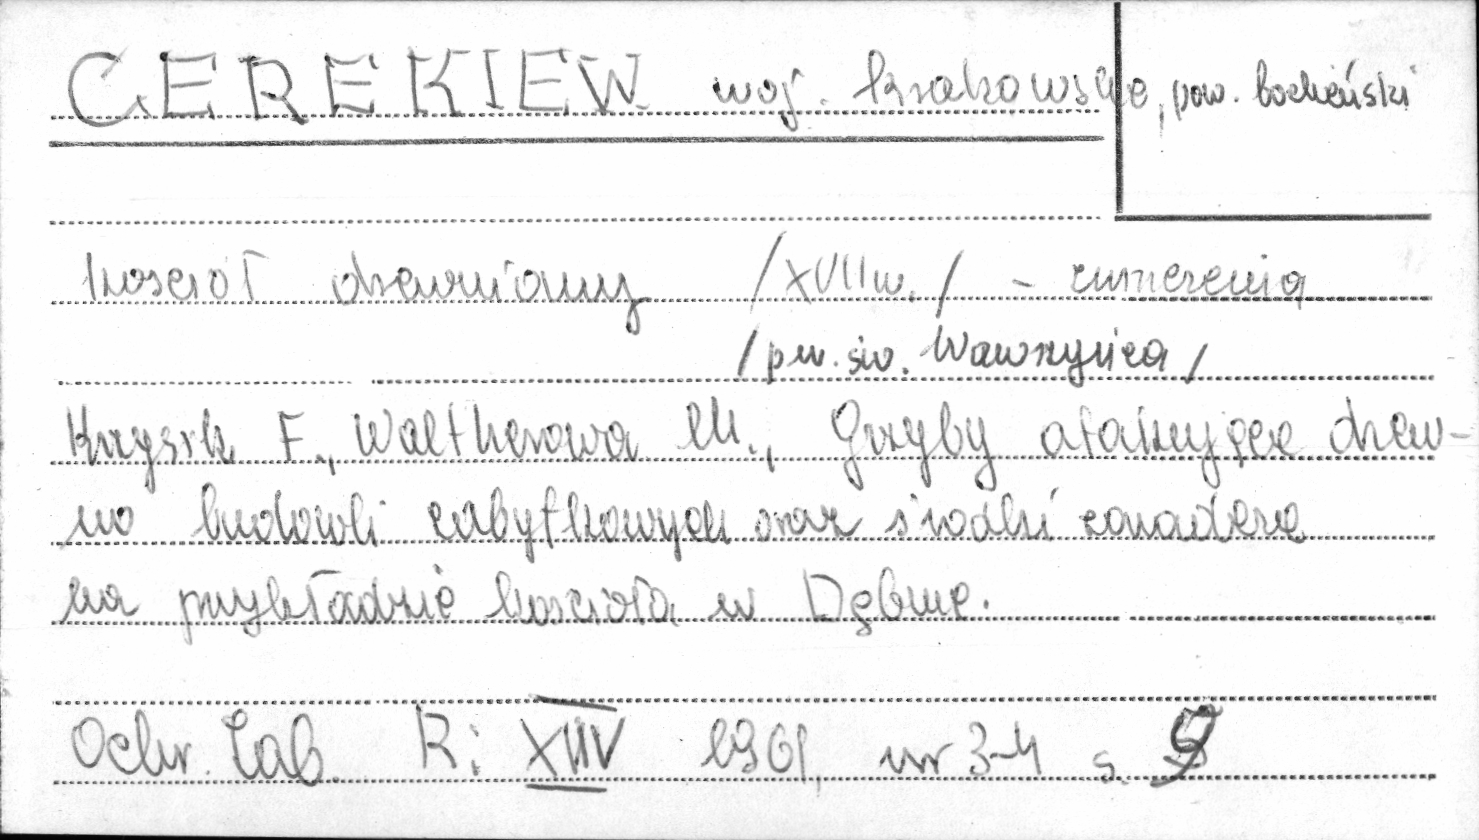 CEREKIEW woj. krakowskie, pow. bocheński
kościół drewniany /XVII w./ - zniszczenia
/pw. św. Wawrzyńca/
Krzysik F., Waltherowa M., Grzyby atakujące drew-
no budowli zabytkowych oraz środki zaradcze
na przykładzie kościoła w Dębnie.
Ochr. Zab. R: 1961, nr 3-4 s.